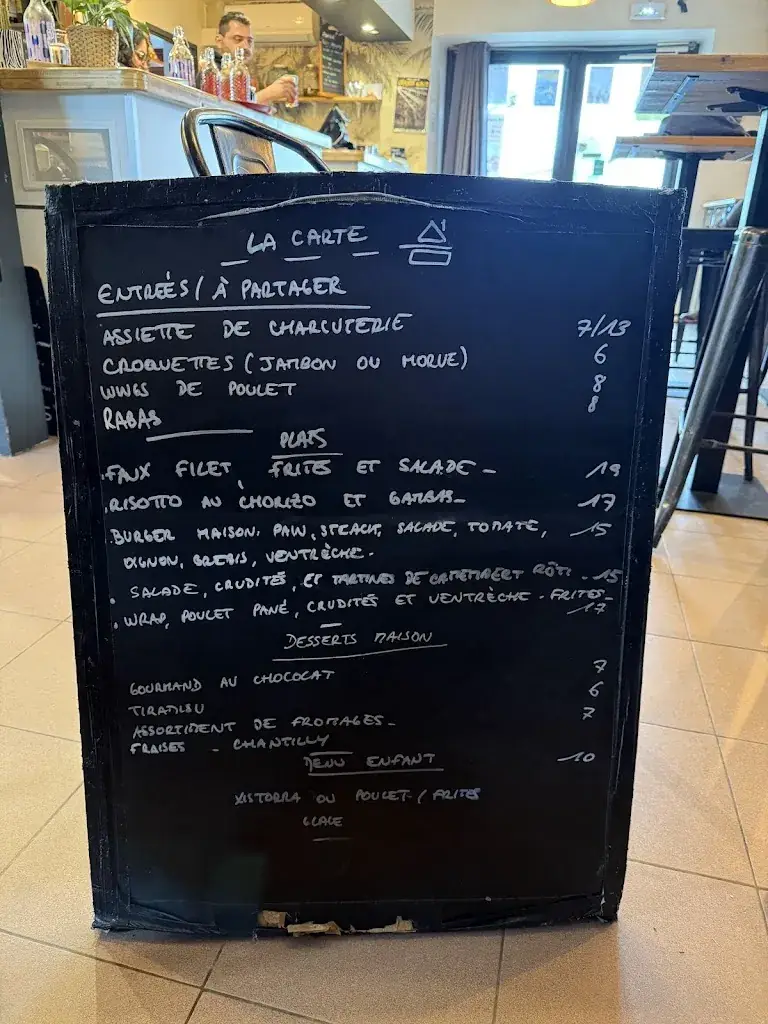 LA CARTE
ENTREÉS / À PARTAGER
ASSIETTE DE CHARCUTERIE 7/13
CROQUETTES (JAMBON OU MORUE) 6
WINGS DE POULET 8
RABAS 8
PLATS
.FAUX FILET, FRITES ET SALADE - 19
.RISOTTO AU CHORIZO ET GAMBAS - 17
.BURGER MAISON: PAIN, STEACK, SALADE, TOMATE, 15
OIGNON, BREBIS, VENTRÈCHE.
. SALADE, CRUDITÉS, ET TARTINES DE CAMEMBERT RÔTI - 15
. WRAP, POULET PANÉ, CRUDITÉS ET VENTRÈCHE - FRITES -
17
DESSERTS MAISON
GOURMAND AU CHOCOCAT 7
TIRAMISU 6
ASSORTIMENT DE FROMAGES - 7
FRAISES - CHANTILLY
MENU ENFANT 10
XISTORRA OU POULET / FRITES
GLACE